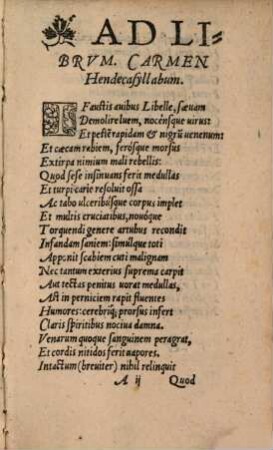 AD LI-
BRVM. CARMEN
Hendecasyllabum.
I Faustis auibus Libelle, sæuam
Demolire luem, nocénsque uirus:
Et pestē rapidam & nigrū uenenum
Et cæcam rabiem, ferósque morsus
Extirpa nimium mali rebellis:
Quod sese insinuans ferit medullas
Et turpi carie resoluit ossa
Ac tabo ulceribúsque corpus implet
Et multis cruciatibus, nouóque
Torquendi genere artubus recondit
Infandam saniem: simúlque toti
Apponit scabiem cuti malignam
Nec tantum exterius suprema carpit
Aut tectas penitus uorat medullas,
Ast in perniciem rapit fluentes
Humores: cerebriq; prorsus infert
Claris spiritibus nociua damna.
Venarum quoque sanguinem peragrat,
Et cordis nitidos ferit uapores.
Intactum (breuiter) nihil relinquit
A ij Quod